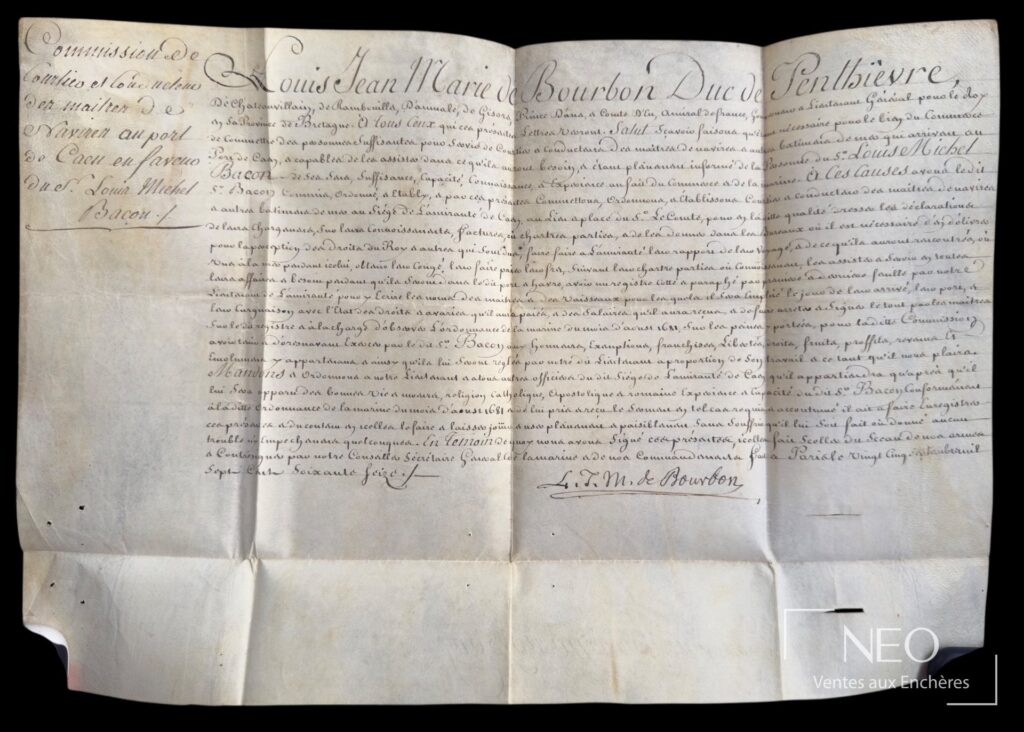 Commission de
Courtier et Conducteur
des maitres de
Navires au port
de Caen en faveur
du Sr. Louis Michel
Bacon ./.
Louis Jean Marie de Bourbon Duc de Penthièvre,
De Chateauvillain, de Rambouillet, D'aumale, de Gisors, Prince D'anet, Comte D'Eu, Amiral de france, Gouverneur et Lieutenant Général pour le Roy
en La Province de Bretagne. A tous Ceux qui ces présentes Lettres verront. Salut. Sçavoir faisons qu'étant nécessaire pour le bien du Commerce
de Commettre des personnes Suffisantes pour Servir de Courtiers et Conducteurs des maitres de navires et autres batimens de mer qui arrivent au
Port de Caen, et capables de les assister dans ce qu'ils auront besoin, et étant pleinement informé de la personne du Sr. Louis Michel
Bacon et de Ses Sens, Suffisance, Capacité, Connaissance, et Experience au fait du Commerce et de la marine. A Ces Causes avons le dit
Sr. Bacon Commis, Ordonné, et Etably, et par ces présentes Commettons, Ordonnons, et Etablissons Courtier et Conducteur des maitres de navires
et autres batimens de mer au Siège de L'amirauté de Caen, au Lieu et place du Sr. Le Comte, pour en la ditte qualité dresser les déclarations
de leurs chargemens, Sur leurs Connoissements, factures, ou chartres parties, et de les donner dans les Bureaux où il est nécessaire d'en délivrer
pour la perception des Droits du Roy et autres qui Sont dus, faire faire à L'amirauté leur rapport de leur voyage, et de ce qu'ils auront rencontrés, ou
Vus à la mer pendant iceluy, obtenir leur Congé, leur faire prendre leur fret, Suivant leur chartre partie ou Connoissement, les assister et Servir en toutes
leurs affaires et besoins pendant qu'ils Seront dans le dit port et havre, avoir un registre cotté et paraphé par premiere et derniere feuille par notre
Lieutenant de L'amirauté pour y Ecrire les noms des maitres et des Vaisseaux pour lesquels il Sera Employé le jour de leur arrivée, leur port, et
leur Cargaison avec l'Etat des droits et avaries qu'il aura payés, et des Salaires qu'il aura reçus, et de faire arreter et Signer le tout par les maitres
Sur le dit registre et à la charge d'observer L'ordonnance de la marine du mois d'aoust 1681, Sur les peines y portées, pour la ditte Commission
avoir tenir et doresnavant Exercer par le dit Sr. Bacon aux Honneurs, Exemptions, franchises, Libertés, droits, fruits, proffits, revenus Et
Emolumens y appartenans, et ainsy qu'ils lui Seront reglés par notre dit Lieutenant à proportion de Son travail et ce tant qu'il nous plaira.
Mandons et Ordonnons à notre Lieutenant et à tous autres officiers du dit Siège de L'amirauté de Caen qu'il appartiendra qu'après qu'il
lui Sera apparu des bonnes Vie et moeurs, religion Catholique, Apostolique et romaine Experience et Capacité du dit Sr. Bacon Conformément
à la ditte Ordonnance de la marine du mois D'aoust 1681 et de lui pris et reçu le Serment en tel cas requis et accoutumé il ait à faire Enregistrer
ces présentes et du contenu en icelles le faire et laisser jouir et user pleinement et paisiblement Sans Souffrir qu'il lui Soit fait ou donné aucun
trouble ni Empechement quelconques. En Temoin de quoy nous avons Signé ces présentes, icelles fait Sceller du Sceau de nos armes
et Contresigner par notre Conseiller Sécrétaire Général de la marine et de nos Commandements fait à Paris le Vingt Cinq Septembre mil
Sept Cent Soixante Seize ./.
L. J. M. de Bourbon
NEO
Ventes aux Enchères